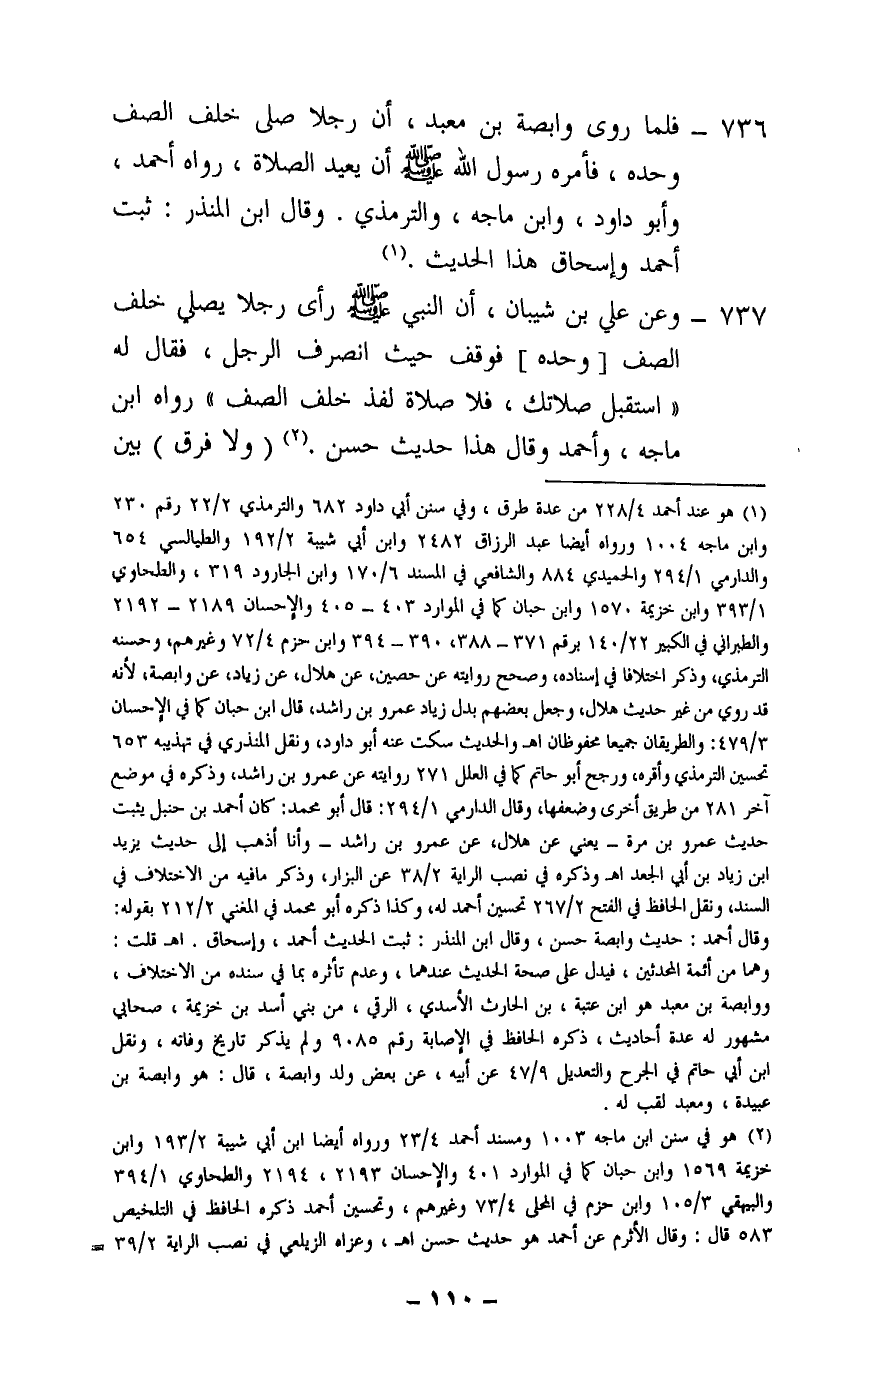 ٧٣٦ ــ فلما روى وابصة بن معبد ، أن رجلا صلى خلف الصف
وحده ، فأمره رسول الله ﷺ أن يعيد الصلاة ، رواه أحمد ،
وأبو داود ، وابن ماجه ، والترمذي . وقال ابن المنذر : ثبت
أحمد وإسحاق هذا الحديث .(١)
٧٣٧ ــ وعن علي بن شيبان ، أن النبي ﷺ رأى رجلا يصلي خلف
الصف [ وحده ] فوقف حيث انصرف الرجل ، فقال له
« استقبل صلاتك ، فلا صلاة لفذ خلف الصف » رواه ابن
ماجه ، وأحمد وقال هذا حديث حسن .(٢) ( ولا فرق ) بين
(١) هو عند أحمد ٢٢٨/٤ من عدة طرق ، وفي سنن أبي داود ٦٨٢ والترمذي ٢٢/٢ رقم ٢٣٠
وابن ماجه ١٠٠٤ ورواه أيضا عبد الرزاق ٢٤٨٢ وابن أبي شيبة ١٩٢/٢ والطيالسي ٦٥٤
والدارمي ٢٩٤/١ والحميدي ٨٨٤ والشافعي في المسند ١٧٠/٦ وابن الجارود ٣١٩ ، والطحاوي
٣٩٣/١ وابن خزيمة ١٥٧٠ وابن حبان كما في الموارد ٤٠٣ ــ ٤٠٥ والإحسان ٢١٨٩ ــ ٢١٩٢
والطبراني في الكبير ١٤٠/٢٢ برقم ٣٧١ ــ ٣٨٨، ٣٩٠ ــ ٣٩٤ وابن حزم ٧٢/٤ وغيرهم، وحسنه
الترمذي، وذكر اختلافا في إسناده، وصحح روايته عن حصين، عن هلال، عن زياد، عن وابصة، لأنه
قد روي من غير حديث هلال، وجعل بعضهم بدل زياد عمرو بن راشد، قال ابن حبان كما في الإحسان
٤٧٩/٣: والطريقان جميعا محفوظان اهـ والحديث سكت عنه أبو داود، ونقل المنذري في تهذيبه ٦٥٣
تحسين الترمذي وأقره، ورجح أبو حاتم كما في العلل ٢٧١ روايته عن عمرو بن راشد، وذكره في موضع
آخر ٢٨١ من طريق أخرى وضعفها، وقال الدارمي ٢٩٤/١: قال أبو محمد: كان أحمد بن حنبل يثبت
حديث عمرو بن مرة ــ يعني عن هلال، عن عمرو بن راشد ــ وأنا أذهب إلى حديث يزيد
ابن زياد بن أبي الجعد اهـ وذكره في نصب الراية ٣٨/٢ عن البزار، وذكر مافيه من الاختلاف في
السند، ونقل الحافظ في الفتح ٢٦٧/٢ تحسين أحمد له، وكذا ذكره أبو محمد في المغني ٢١٢/٢ بقوله:
وقال أحمد : حديث وابصة حسن ، وقال ابن المنذر : ثبت الحديث أحمد ، وإسحاق . اهـ قلت :
وهما من أئمة المحدثين ، فيدل على صحة الحديث عندهما ، وعدم تأثره بما في سنده من الاختلاف ،
ووابصة بن معبد هو ابن عتبة ، بن الحارث الأسدي ، الرقي ، من بني أسد بن خزيمة ، صحابي
مشهور له عدة أحاديث ، ذكره الحافظ في الإصابة رقم ٩٠٨٥ ولم يذكر تاريخ وفاته ، ونقل
ابن أبي حاتم في الجرح والتعديل ٤٧/٩ عن أبيه ، عن بعض ولد وابصة ، قال : هو وابصة بن
عبيدة ، ومعبد لقب له .
(٢) هو في سنن ابن ماجه ١٠٠٣ ومسند أحمد ٢٣/٤ ورواه أيضا ابن أبي شيبة ١٩٣/٢ وابن
خزيمة ١٥٦٩ وابن حبان كما في الموارد ٤٠١ والإحسان ٢١٩٣ ، ٢١٩٤ والطحاوي ٣٩٤/١
والبيهقي ١٠٥/٣ وابن حزم في المحلى ٧٣/٤ وغيرهم ، وتحسين أحمد ذكره الحافظ في التلخيص
٥٨٣ قال : وقال الأثرم عن أحمد هو حديث حسن اهـ ، وعزاه الزيلعي في نصب الراية ٣٩/٢ =
ــ ١١٠ ــ